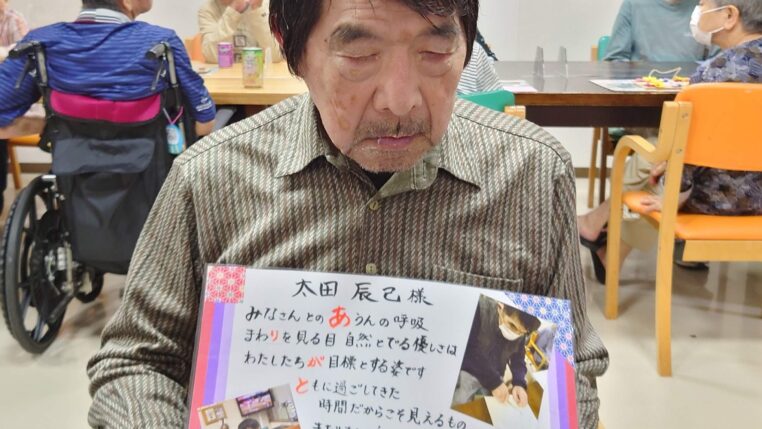 太田 辰己様
みなさんとの あうんの呼吸
まわりを見る目 自然とでる優しさは
わたしたちが目標とする姿です
ともに過ごしてきた
時間だからこそ見えるもの